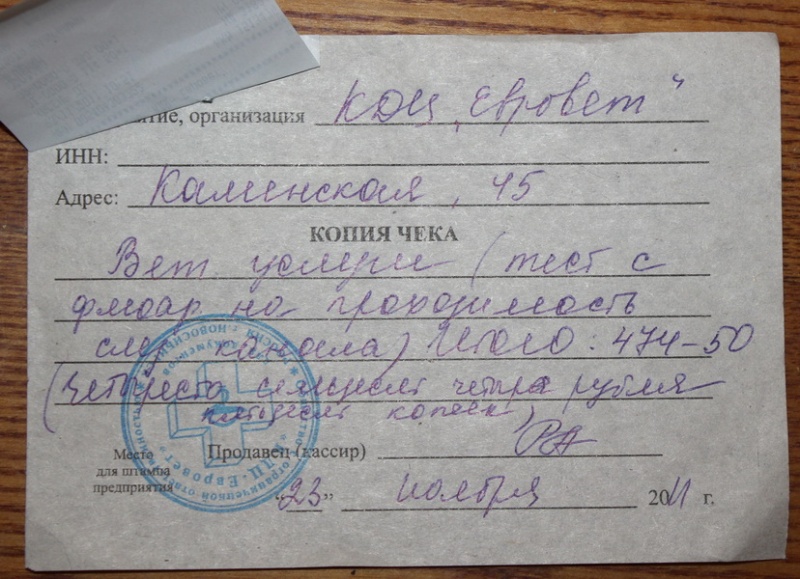 ятие, организация КДЦ „Евровет"
ИНН:
Адрес: Каменская, 45
КОПИЯ ЧЕКА
Вет услуги (тест с
флюор на проходимость
слез канала) Итого: 474-50
(Четыреста семьдесят четыре рубля
пятьдесят копеек)
Место
для штампа
предприятия
Продавец (кассир)
"23" ноября 2011 г.